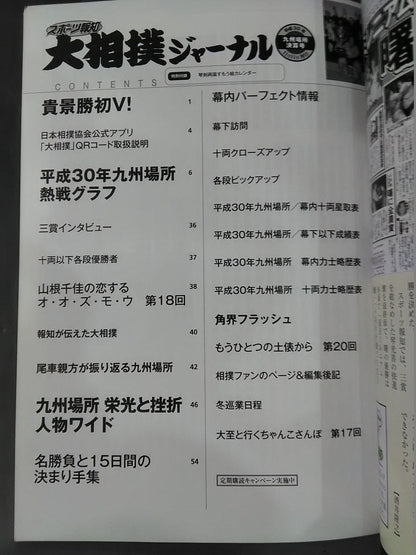 スポーツ報知
大相撲ジャーナル
平成30年
九州場所
決算号
CONTENTS
特別付録
琴剣両国すもう絵カレンダー
貴景勝初V! 1
日本相撲協会公式アプリ 4
「大相撲」QRコード取扱説明
平成30年九州場所 6
熱戦グラフ
三賞インタビュー 36
十両以下各段優勝者 37
山根千佳の恋する 38
オ・オ・ズ・モ・ウ 第18回
報知が伝えた大相撲 40
尾車親方が振り返る九州場所 42
九州場所 栄光と挫折 46
人物ワイド
名勝負と15日間の 54
決まり手集
幕内パーフェクト情報
幕下訪問
十両クローズアップ
各段ピックアップ
平成30年九州場所/幕内十両星取表
平成30年九州場所/幕下以下成績表
平成30年九州場所 幕内力士略歴表
平成30年九州場所 十両力士略歴表
角界フラッシュ
もうひとつの土俵から 第20回
相撲ファンのページ&編集後記
冬巡業日程
大至と行くちゃんこさんぽ 第17回
定期購読キャンペーン実施中
勝を決めた。
スポーツ報知では、三賞
できなかった。